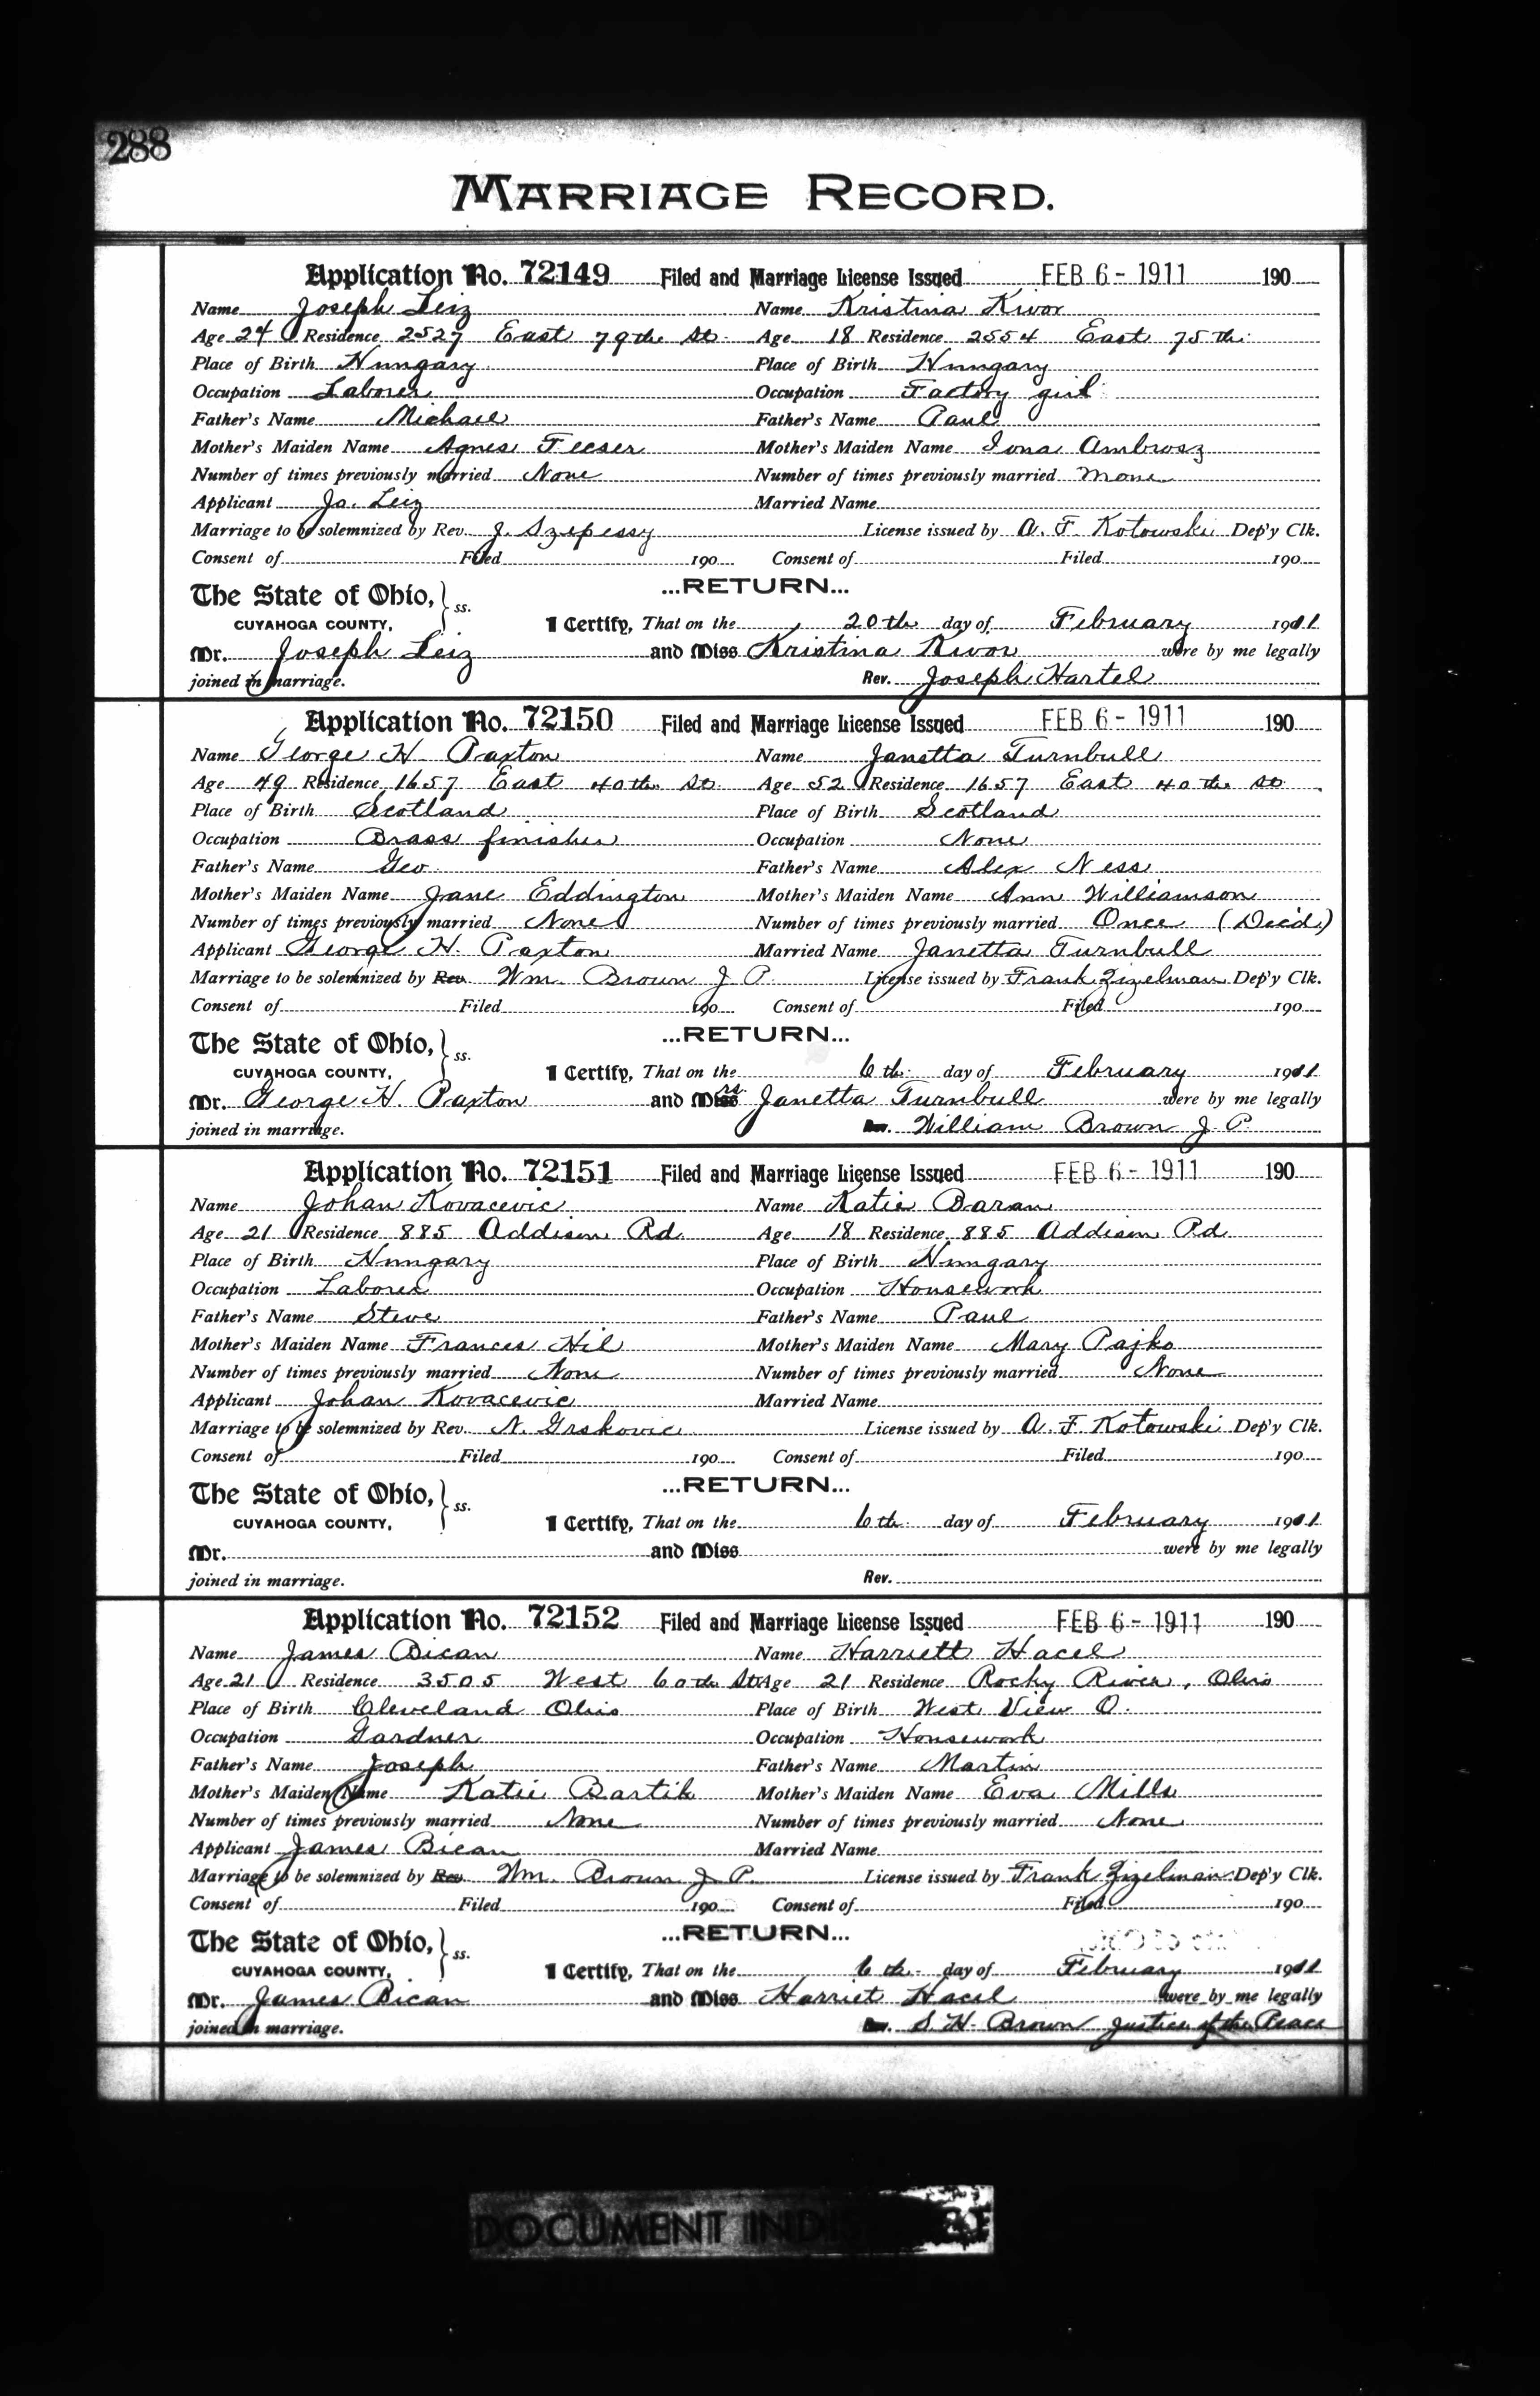 288
MARRIAGE RECORD.
Application No. 72149 Filed and Marriage License Issued FEB 6 - 1911 190
Name Joseph Leiz Name Kristina Kivor
Age 24 Residence 2527 East 79th St. Age 18 Residence 2554 East 75th
Place of Birth Hungary Place of Birth Hungary
Occupation Laborer Occupation Factory girl
Father's Name Michael Father's Name Paul
Mother's Maiden Name Agnes Feeser Mother's Maiden Name Iona Ambrosz
Number of times previously married None Number of times previously married None
Applicant Jo. Leiz Married Name
Marriage to be solemnized by Rev. J. Szepessy License issued by A. F. Kotowski Dep'y Clk.
Consent of Filed 190 Consent of Filed 190
The State of Ohio, } ss. ...RETURN...
CUYAHOGA COUNTY, I Certify, That on the 20th day of February 1911
Mr. Joseph Leiz and Miss Kristina Kivor were by me legally
joined in marriage. Rev. Joseph Hartel
Application No. 72150 Filed and Marriage License Issued FEB 6 - 1911 190
Name George H. Paxton Name Janetta Turnbull
Age 49 Residence 1657 East 40th St. Age 52 Residence 1657 East 40th St
Place of Birth Scotland Place of Birth Scotland
Occupation Brass finisher Occupation None
Father's Name Geo. Father's Name Alex Ness
Mother's Maiden Name Jane Eddington Mother's Maiden Name Ann Williamson
Number of times previously married None Number of times previously married Once (Dec'd.)
Applicant George H. Paxton Married Name Janetta Turnbull
Marriage to be solemnized by Rev. Wm. Brown J. P. License issued by Frank Zizelman Dep'y Clk.
Consent of Filed 190 Consent of Filed 190
The State of Ohio, } ss. ...RETURN...
CUYAHOGA COUNTY, I Certify, That on the 6th day of February 1911
Mr. George H. Paxton and Mrs. Janetta Turnbull were by me legally
joined in marriage. William Brown J. P.
Application No. 72151 Filed and Marriage License Issued FEB 6 - 1911 190
Name Johan Kovacevic Name Katie Baran
Age 21 Residence 885 Addison Rd. Age 18 Residence 885 Addison Rd
Place of Birth Hungary Place of Birth Hungary
Occupation Laborer Occupation Housework
Father's Name Steve Father's Name Paul
Mother's Maiden Name Frances Hil Mother's Maiden Name Mary Pajko
Number of times previously married None Number of times previously married None
Applicant Johan Kovacevic Married Name
Marriage to be solemnized by Rev. N. Grskovic License issued by A. F. Kotowski Dep'y Clk.
Consent of Filed 190 Consent of Filed 190
The State of Ohio, } ss. ...RETURN...
CUYAHOGA COUNTY, I Certify, That on the 6th day of February 1911
Mr. and Miss were by me legally
joined in marriage. Rev.
Application No. 72152 Filed and Marriage License Issued FEB 6 - 1911 190
Name James Bican Name Harriett Hacel
Age 21 Residence 3505 West 60th St Age 21 Residence Rocky River, Ohio
Place of Birth Cleveland Ohio Place of Birth West View O.
Occupation Gardner Occupation Housework
Father's Name Joseph Father's Name Martin
Mother's Maiden Name Katie Bartik Mother's Maiden Name Eva Mills
Number of times previously married None Number of times previously married None
Applicant James Bican Married Name
Marriage to be solemnized by Rev. Wm. Brown J. P. License issued by Frank Zizelman Dep'y Clk.
Consent of Filed 190 Consent of Filed 190
The State of Ohio, } ss. ...RETURN...
CUYAHOGA COUNTY, I Certify, That on the 6th day of February 1911
Mr. James Bican and Miss Harriet Hacel were by me legally
joined in marriage. S. H. Brown Justice of the Peace
DOCUMENT